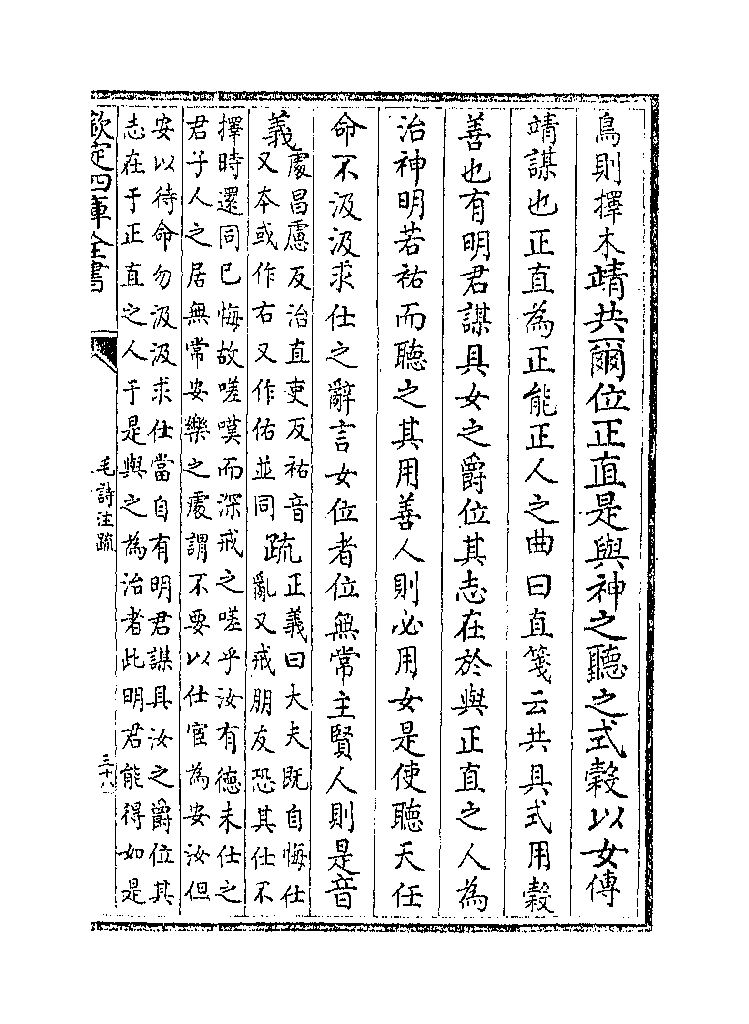 鳥則擇木靖共爾位正直是與神之聽之式榖以女傳
靖謀也正直為正能正人之曲曰直箋云共具式用榖
善也有明君謀具女之爵位其志在於與正直之人為
治神明若祐而聽之其用善人則必用女是使聽天任
命不汲汲求仕之辭言女位者位無常主賢人則是音
義處昌慮反治直吏反祐音
又本或作右又作佑並同
疏正義曰大夫既自悔仕
亂又戒朋友恐其仕不
擇時還同已悔故嗟嘆而深戒之嗟乎汝有德未仕之
君子人之居無常安樂之處謂不要以仕宦為安汝但
安以待命勿汲汲求仕當自有明君謀具汝之爵位其
志在于正直之人于是與之為治者此明君能得如是
欽定四庫全書
毛詩注疏
三十八